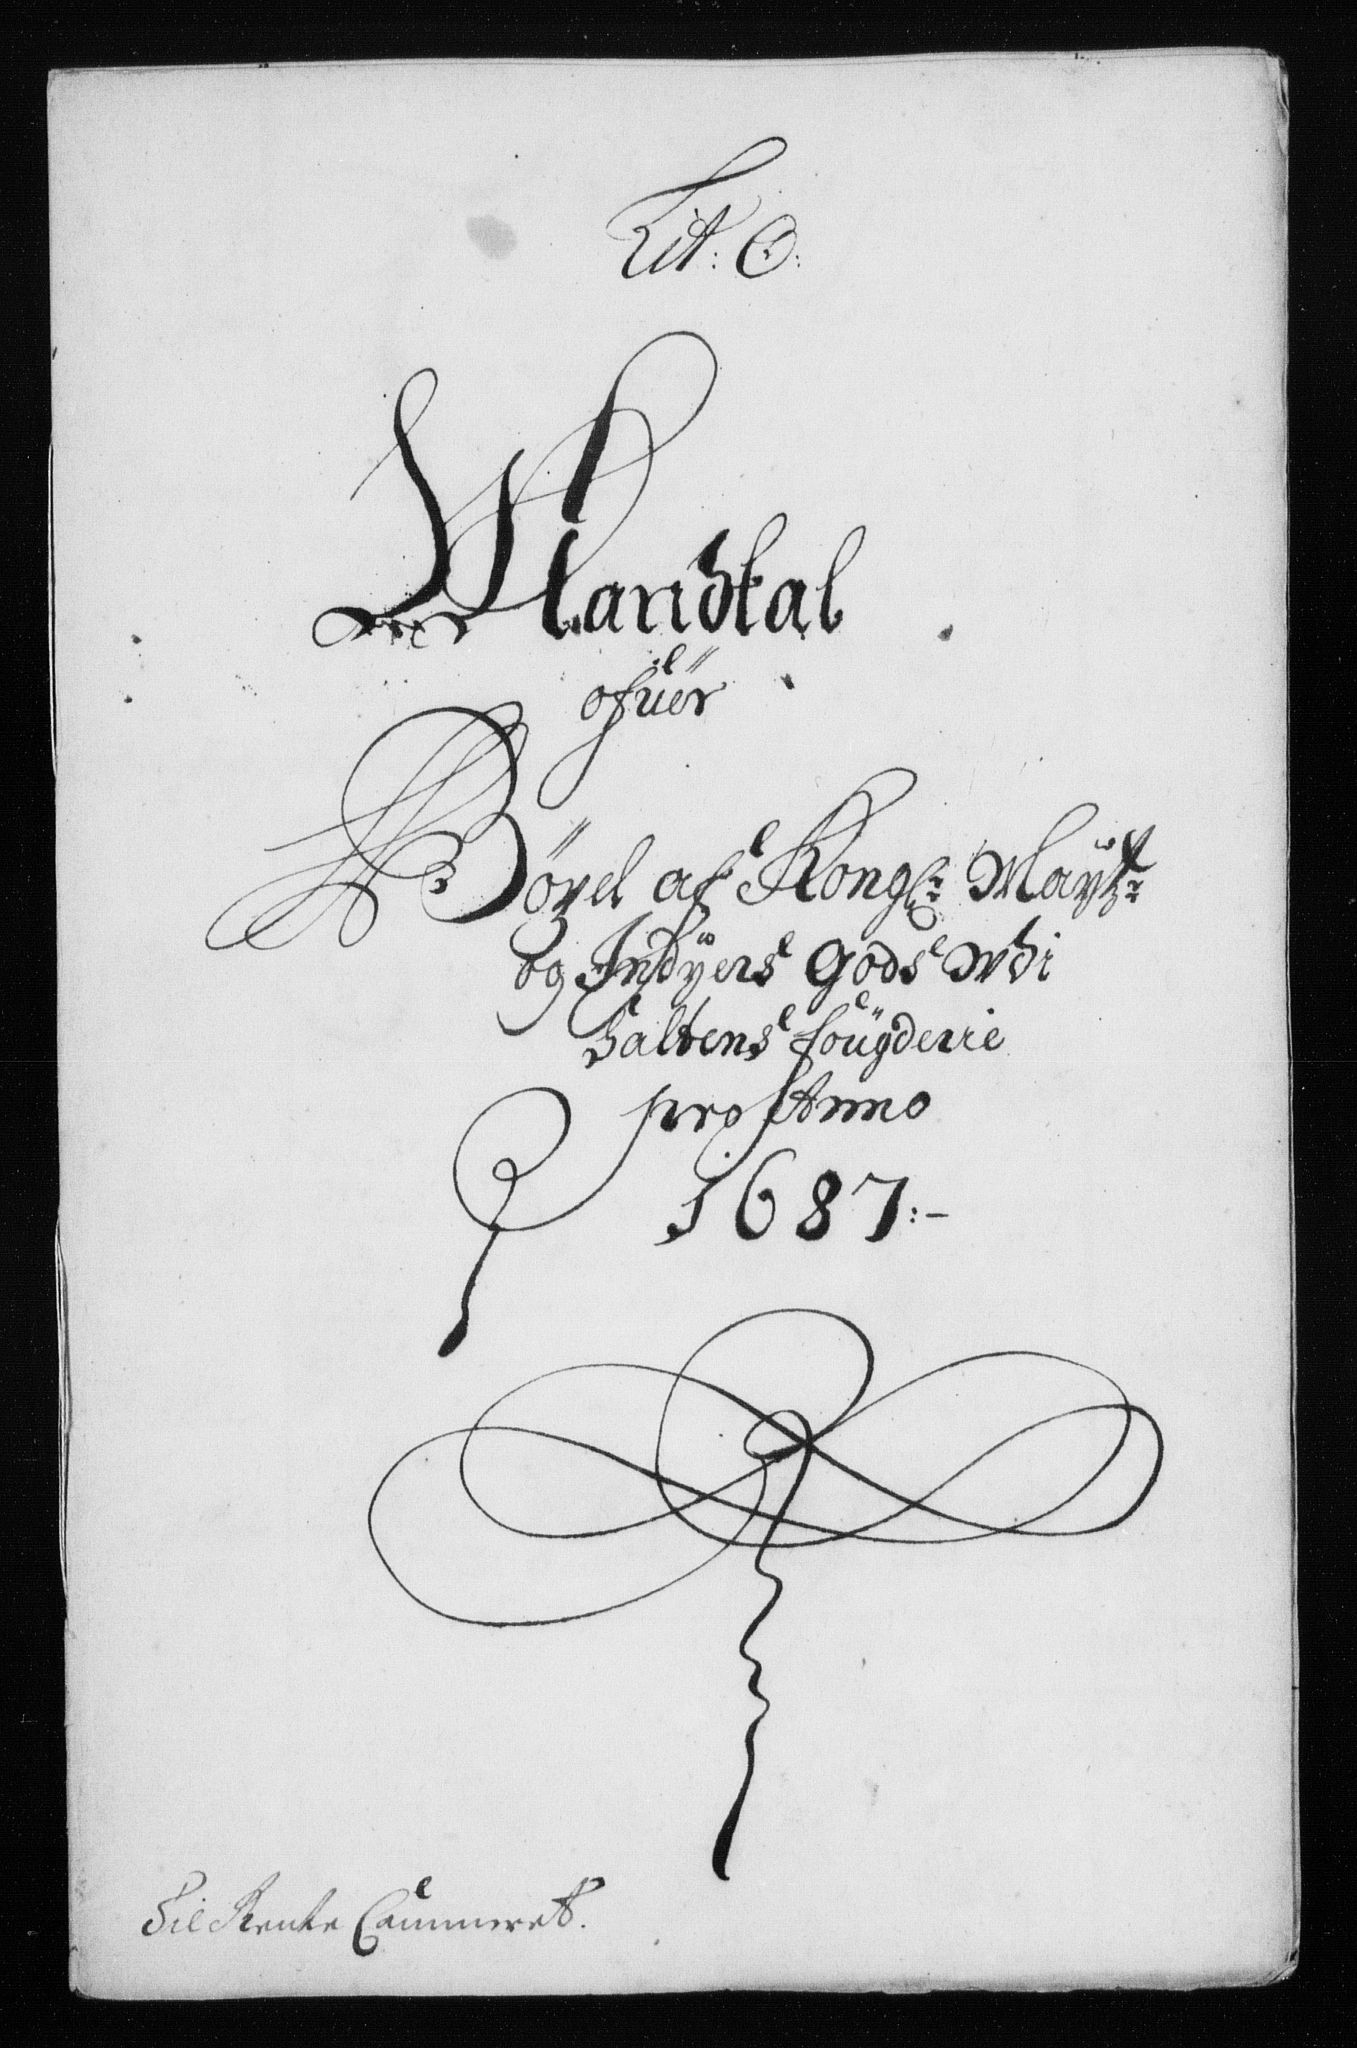 Lit: C:
Mandtal
ofuer
Böxel af Kongl: Maytz:
og Jndyers Gods Wdi
Saltens fougderie
pro Anno
1687:-
Til Rente Cammeret.